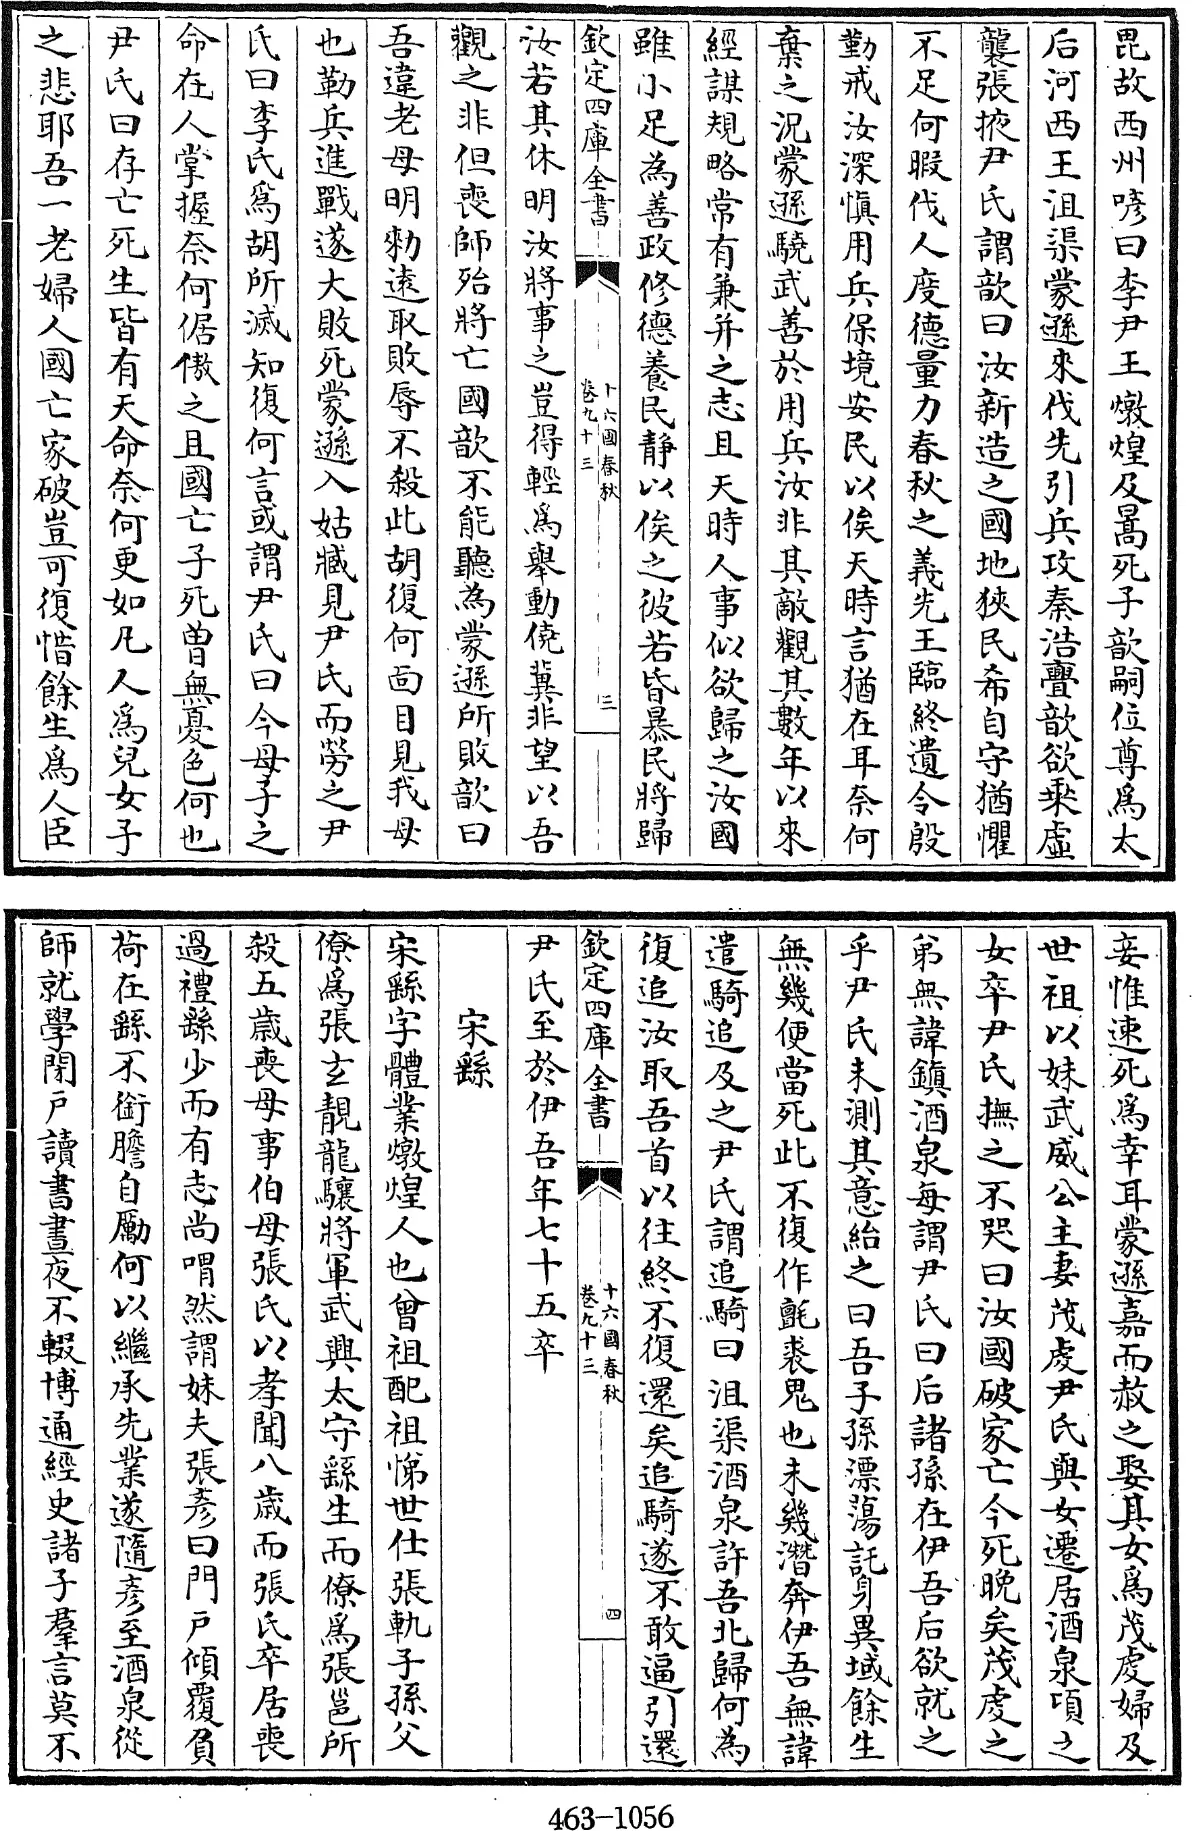 毘故西州嘜曰李尹王燉煌及暠死子歆嗣位尊爲太
后河西王沮渠蒙遜來伐先引兵攻秦浩亹歆欲乘虛
襲張掖尹氏謂歆曰汝新造之國地狹民希自守猶懼
不足何暇伐人度德量力春秋之義先王臨終遺令殷
勤戒汝深慎用兵保境安民以俟天時言猶在耳奈何
棄之況蒙遜驍武善於用兵汝非其敵觀其數年以來
經謀規略常有兼并之志且天時人事似欲歸之汝國
雖小足為善政修德養民靜以俟之彼若昏暴民將歸
欽定四庫全書
十六國春秋
卷九十三
三
汝若其休明汝將事之豈得輕爲舉動僥冀非望以吾
觀之非但喪師殆將亡國歆不能聽為蒙遜所敗歆曰
吾違老母明勑遠取敗辱不殺此胡復何面目見我母
也勒兵進戰遂大敗死蒙遜入姑臧見尹氏而勞之尹
氏曰李氏爲胡所滅知復何言或謂尹氏曰今母子之
命在人掌握奈何倨傲之且國亡子死曾無憂色何也
尹氏曰存亡死生皆有天命奈何更如凡人爲兒女子
之悲耶吾一老婦人國亡家破豈可復惜餘生爲人臣
妾惟速死爲幸耳蒙遜嘉而赦之娶其女爲茂虔婦及
世祖以妹武威公主妻茂虔尹氏與女遷居酒泉頃之
女卒尹氏撫之不哭曰汝國破家亡今死晚矣茂虔之
弟無諱鎮酒泉每謂尹氏曰后諸孫在伊吾后欲就之
乎尹氏未測其意紿之曰吾子孫漂蕩託身異域餘生
無幾便當死此不復作氈裘鬼也未幾潛奔伊吾無諱
遣騎追及之尹氏謂追騎曰沮渠酒泉許吾北歸何為
復追汝取吾首以往終不復還矣追騎遂不敢逼引還
欽定四庫全書
十六國春秋
卷九十三
四
尹氏至於伊吾年七十五卒
宋繇
宋繇字體業燉煌人也曾祖配祖悌世仕張軌子孫父
僚爲張玄靚龍驤將軍武興太守繇生而僚爲張邕所
殺五歲喪母事伯母張氏以孝聞八歲而張氏卒居喪
過禮繇少而有志尚喟然謂妹夫張彥曰門戶傾覆負
荷在繇不銜膽自勵何以繼承先業遂隨彥至酒泉從
師就學閉戶讀書晝夜不輟博通經史諸子羣言莫不
463-1056